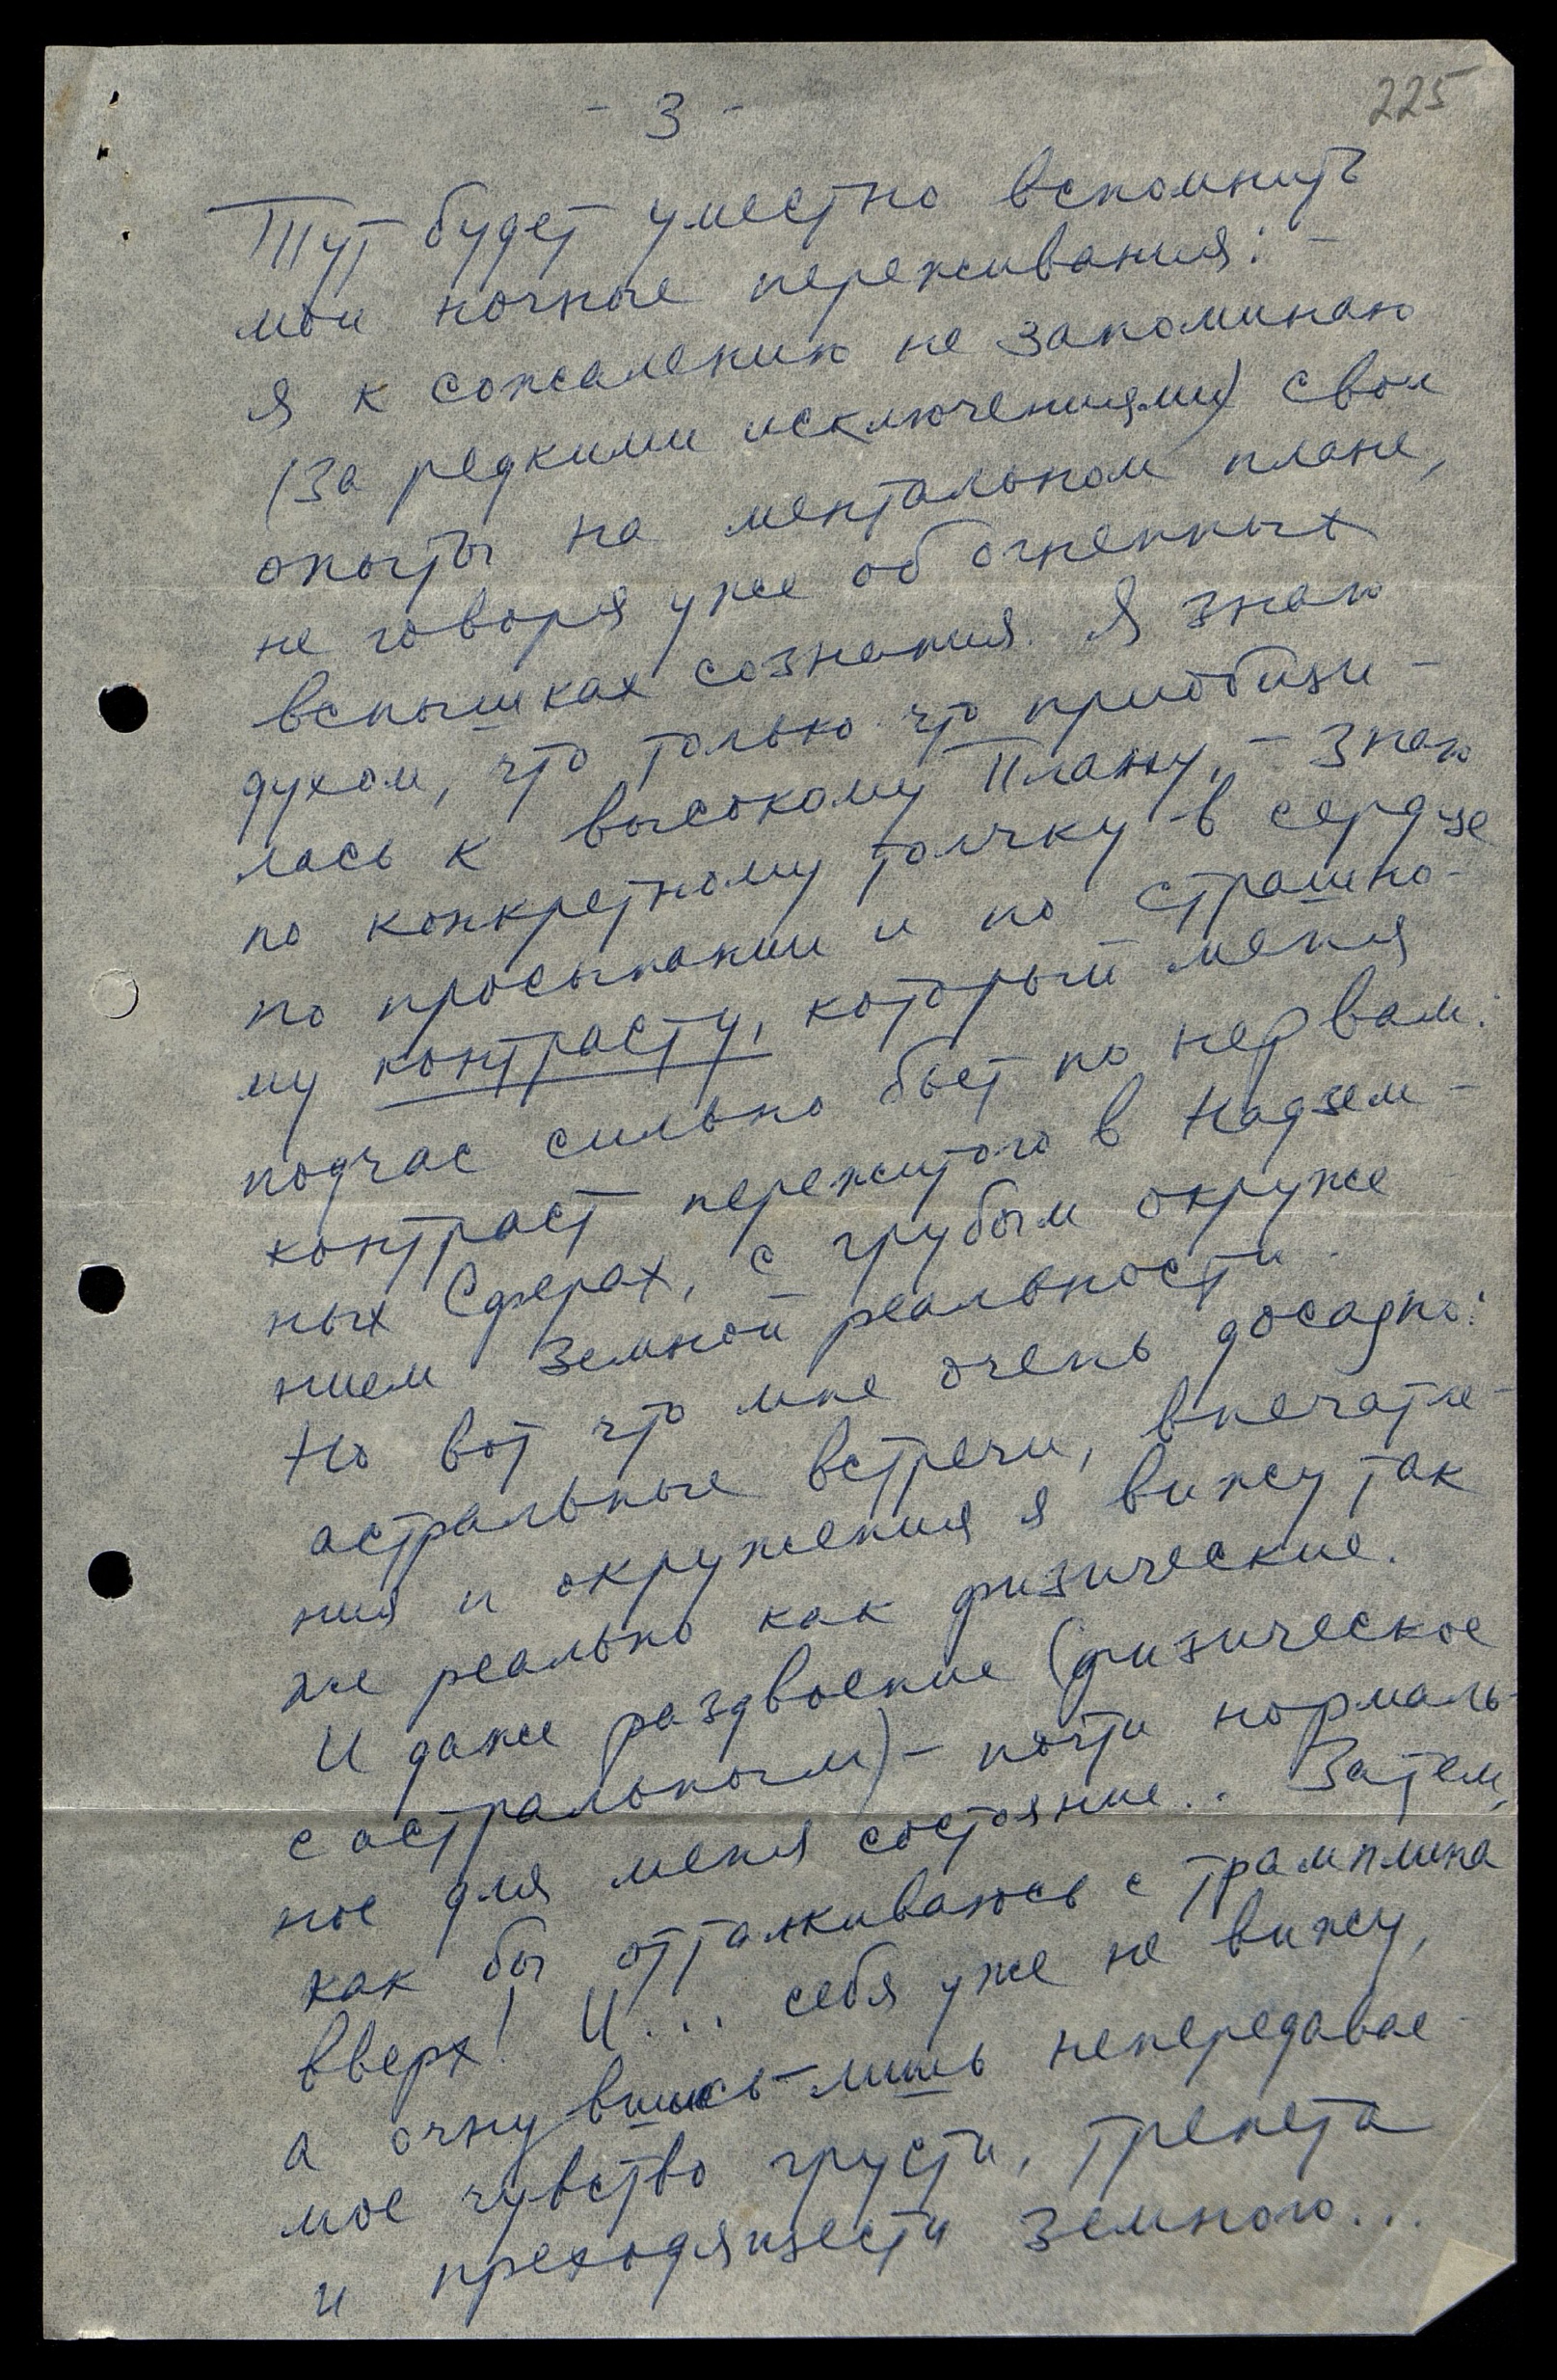 - 3 -
225
Тут будет уместно вспомнить
мои ночные переживания: -
я к сожалению не запоминаю
(за редкими исключениями) свои
опыты на ментальном плане,
не говоря уже об огненных
вспышках сознания. Я знаю
духом, что только что приобщи-
лась к высокому Плану, - знаю
по конкретному толчку в сердце
по просыпании и по страшно-
му контрасту, который меня
подчас сильно бьет по нервам:
контраст пережитого в Надзем-
ных Сферах, с грубым окруже-
нием земной реальности.
Но вот что мне очень досадно:
астральные встречи, впечатле-
ния и окружения я вижу так
же реально как физические.
И даже раздвоение (физическое
с астральным) - почти нормаль-
ное для меня состояние.. Затем,
как бы отталкиваюсь с трамплина
вверх! И... себя уже не вижу,
а очнувшись - лишь непередавае-
мое чувство грусти, трепета
и преходящести земного...